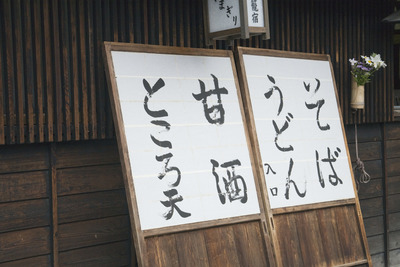 籠宿
まぎり
そば
うどん
入口
甘酒
ところ天